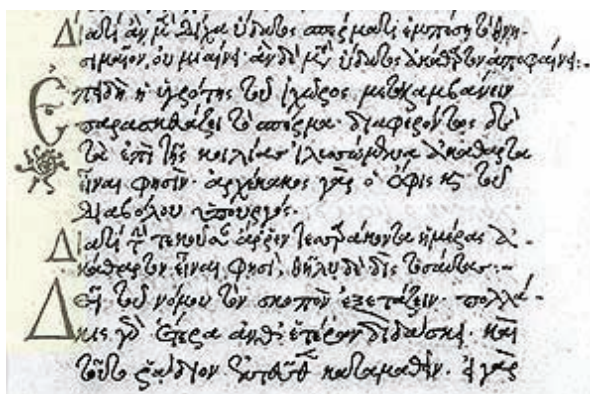 Διατί ἂν μὲν δίχα ὕδατος σπέρματι ἐμπέσῃ τὸ θνη-
σιμαῖον, οὐ μιαίνει· ἂν δὲ μεθ' ὕδατος ἀκάθαρτον ἀποφαίνει:-
Ἐπειδὴ ἡ ὑγρότης τοῦ ἰχῶρος μεταλαμβάνειν
παρασκευάζει τὸ σπέρμα· διαφερόντως δὲ
τὰ ἐπὶ τῆς κοιλίας ἀκάθαρτα
εἶναι φησίν· ἀρχέκακος γὰρ ὁ ὄφις καὶ τοῦ
διαβόλου ὑπουργός.
Διατί τὴν τεκοῦσαν ἄρρεν τεσσαράκοντα ἡμέρας ἀ-
κάθαρτον εἶναι φησί, θῆλυ δὲ δὶς τοσαύτας:-
Δεῖ τοῦ νόμου τὸν σκοπὸν ἐξετάζειν· πολλά-
κις γὰρ ἕτερα ἀνθ' ἑτέρων διδάσκει. καὶ
τοῦτο ῥάδιον ἐντεῦθεν καταμαθεῖν. εἰ γὰρ